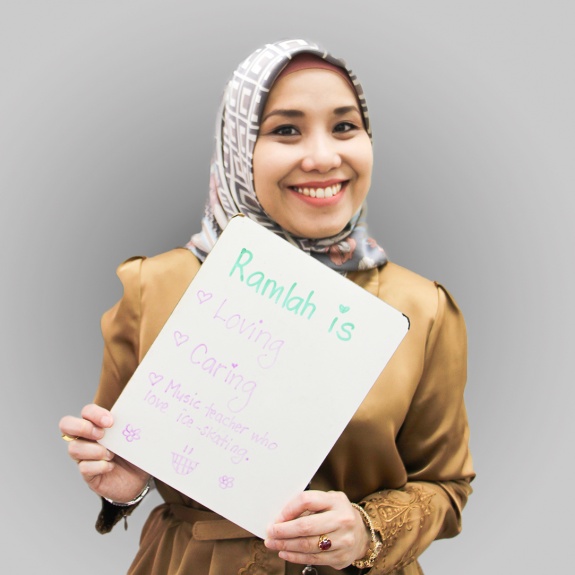 Ramlah is
Loving
Caring
Music teacher who
love ice-skating.